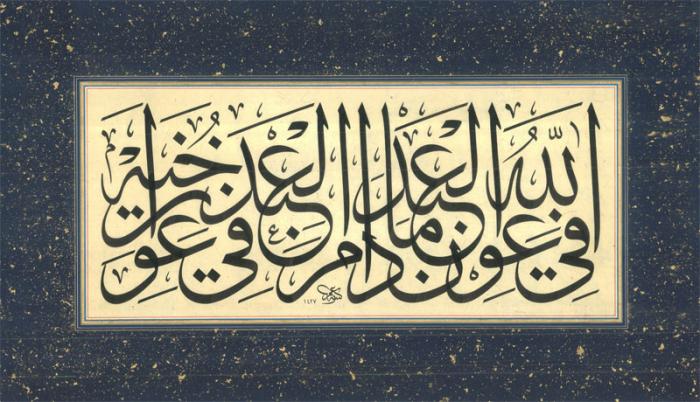 الله في عون العبد ما دام العبد في عون أخيه
١٤٢٧